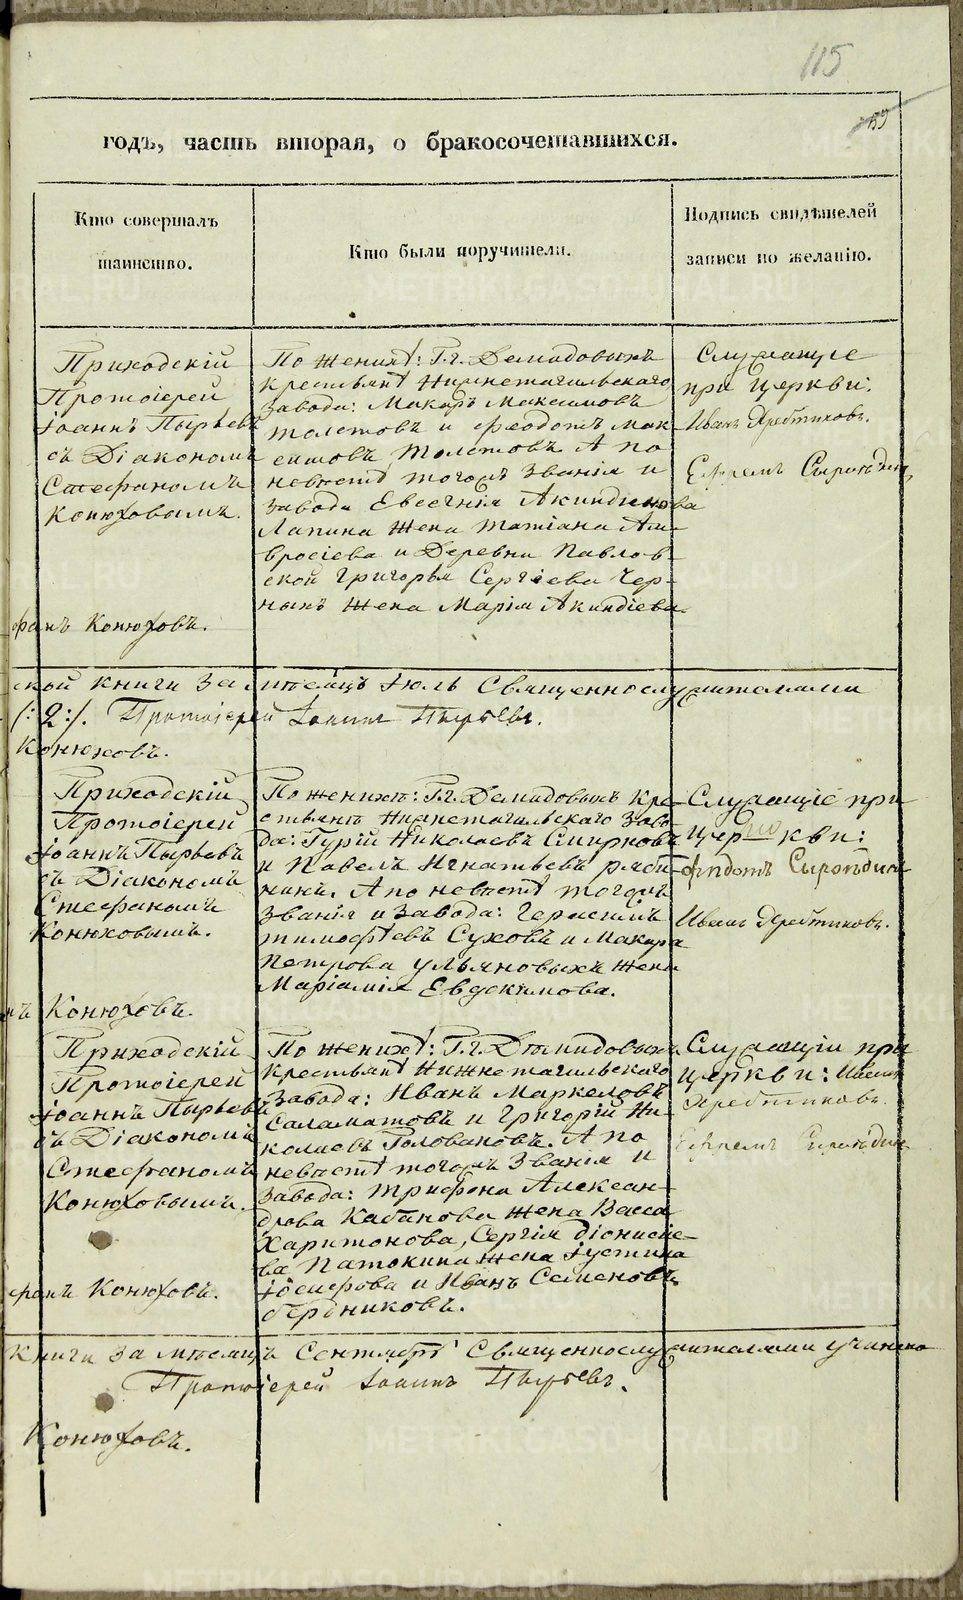 115
годъ, часть вторая, о бракосочетавшихся.
Кто совершалъ
таинство.
Кто были поручители.
Подпись свидѣтелей
записи по желанію.
Приходскій
Протоіерей
Іоаннъ Пырьевъ
съ Діакономъ
Стефаномъ
Конюховымъ.
По женихѣ: Г.г. Демидовыхъ
крестьянѣ Нижнетагильскаго
завода: Макаръ Максимовъ
Толстовъ и Феодотъ Мак-
симовъ Толстовъ. А по
невѣстѣ тогожъ званія и
завода Евсегнія Акиндинова
Лапина жена Татіана Ам-
вросіева и Деревни Павлов-
ской Григорья Сергіева Чер-
ныхъ жена Марія Акиндіева.
Служащіе
при церкви:
Иванъ Хребтиковъ.
Ефремъ
фанъ Конюховъ.
ской книги за мѣсяцъ Іюль Священнослужителями
(:2:). Протоіерей Іоаннъ Пырьевъ.
Конюховъ.
Приходскій
Протоіерей
Іоаннъ Пырьевъ
съ Діакономъ
Стефаномъ
Конюховымъ.
По женихѣ: Г.г. Демидовыхъ кре-
стьянѣ Нижнетагильскаго заво-
да: Гурій Николаевъ Смирновъ
и Павелъ Игнатьевъ Ряби-
нинъ. А по невѣстѣ тогожъ
званія и завода: Герасимъ
Тимофѣевъ Суховъ и Макара
Петрова Ульяновыхъ жена
Маріамія Евдокимова.
Служащіе при
церкви:
Иванъ Хребтиковъ.
нъ Конюховъ.
Приходскій
Протоіерей
Іоаннъ Пырьевъ
съ Діакономъ
Стефаномъ
Конюховымъ.
По женихѣ: Г.г. Демидовыхъ
крестьянѣ Нижнетагильскаго
завода: Иванъ Маркеловъ
Саламатовъ и Григорій Ни-
колаевъ Головановъ. А по
невѣстѣ тогожъ званія и
завода: Трифона Алексан-
дрова Кабанова жена Васса
Харитонова, Сергія Діонисіе-
ва Патокина жена Іустина
Іосифова и Иванъ Семеновъ
Бердниковъ.
Служащіи при
церкви: Иванъ
Хребтиковъ.
Ефремъ
фанъ Конюховъ.
книги за мѣсяцъ Сентябрь Священнослужителями учинено
Протоіерей Іоаннъ Пырьевъ.
Конюховъ.
METRIKI.GASO-URAL.RU